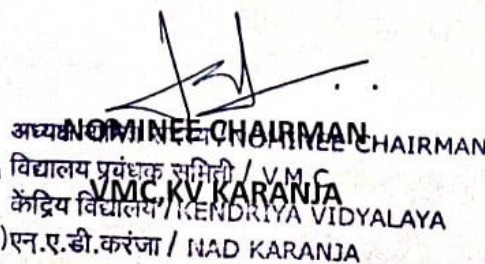 अध्यक्ष / NOMINEE CHAIRMAN
NOMINEE CHAIRMAN
विद्यालय प्रबंधक समिती / V.M.C
VMC,KV KARANJA
केंद्रिय विद्यालय / KENDRIYA VIDYALAYA
)एन.ए.डी.करंजा / NAD KARANJA